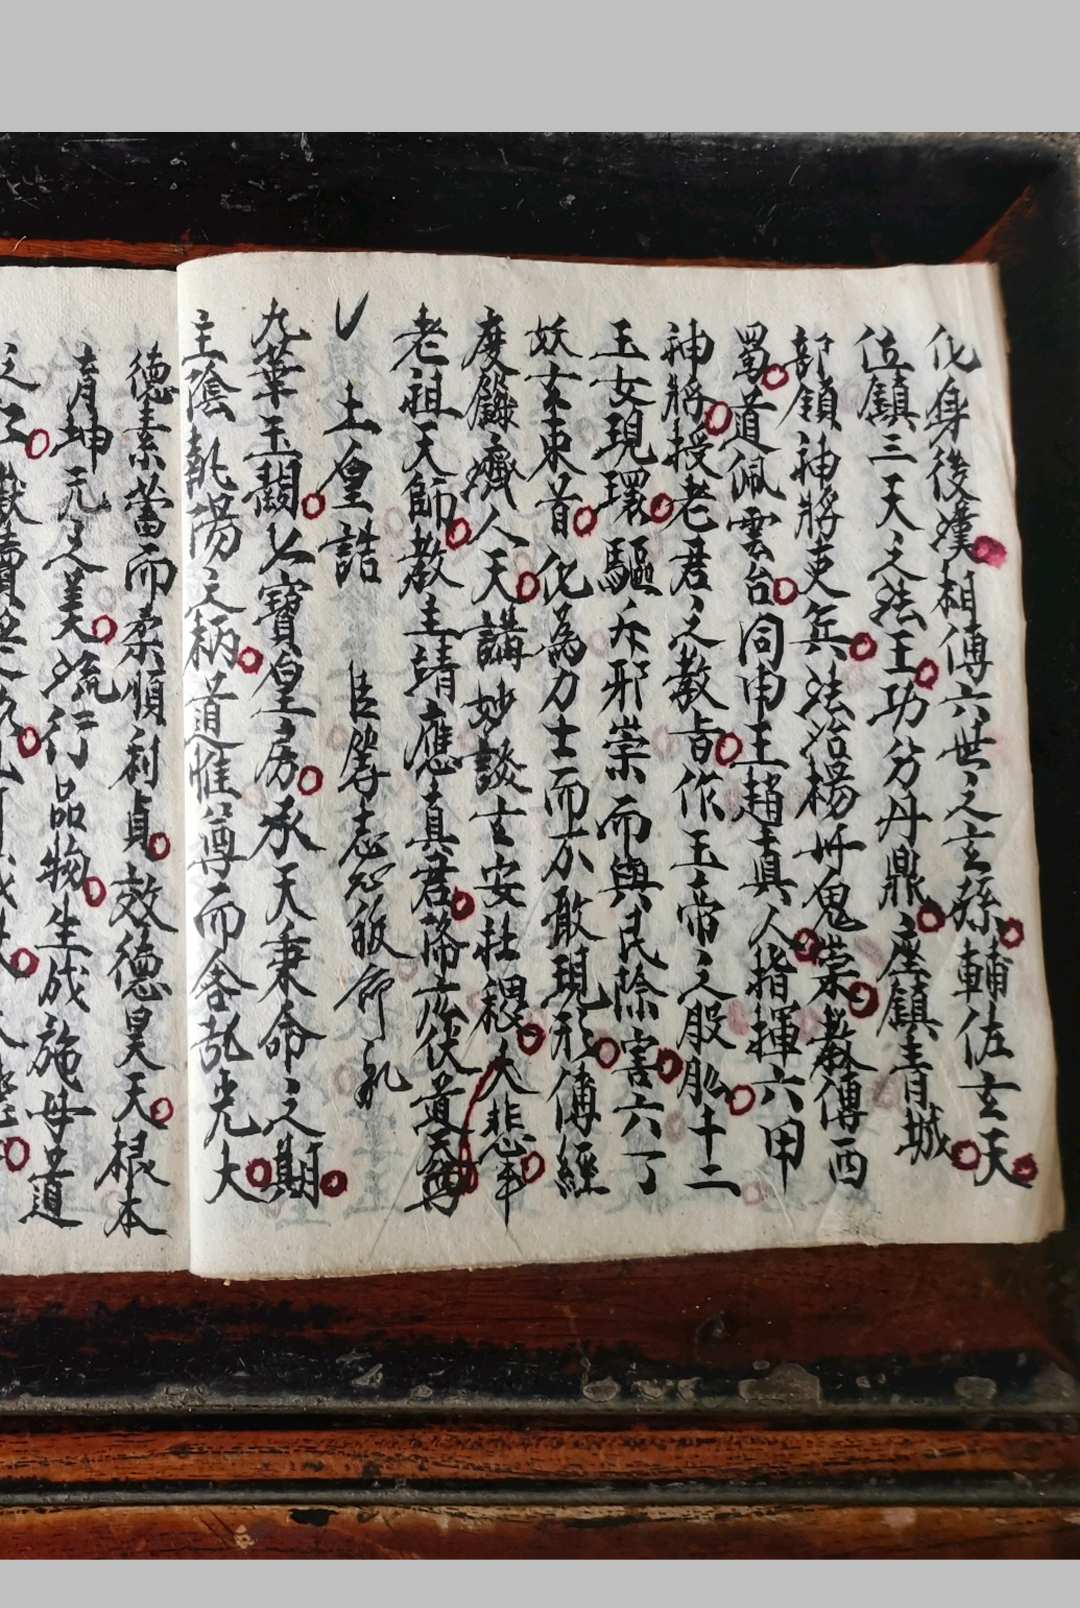 化身後漢相傳六世之玄孫輔佐玄天
位鎮三天之法王功分丹鼎座鎮青城
部領神將吏兵法治楊丹鬼崇教傳西
蜀道佩雲台同申王趙真人指揮六甲
神將授老君之教旨作玉帝之股肱十二
玉女現環驅斥邪崇而與民除害六丁
妖玄束首化為力士而不敢現形傳經
度籙濟人天講妙談玄安社稷大悲
老祖天師教主靖應真君蕩六伏道天尊
土皇誥 志心皈命礼
九華玉闕七寶皇房承天秉命之期
主陰執陽之柄道惟尊而含弘光大
德素蓄而柔順利貞效德昊天根本
育坤元之美流行品物生成施母道